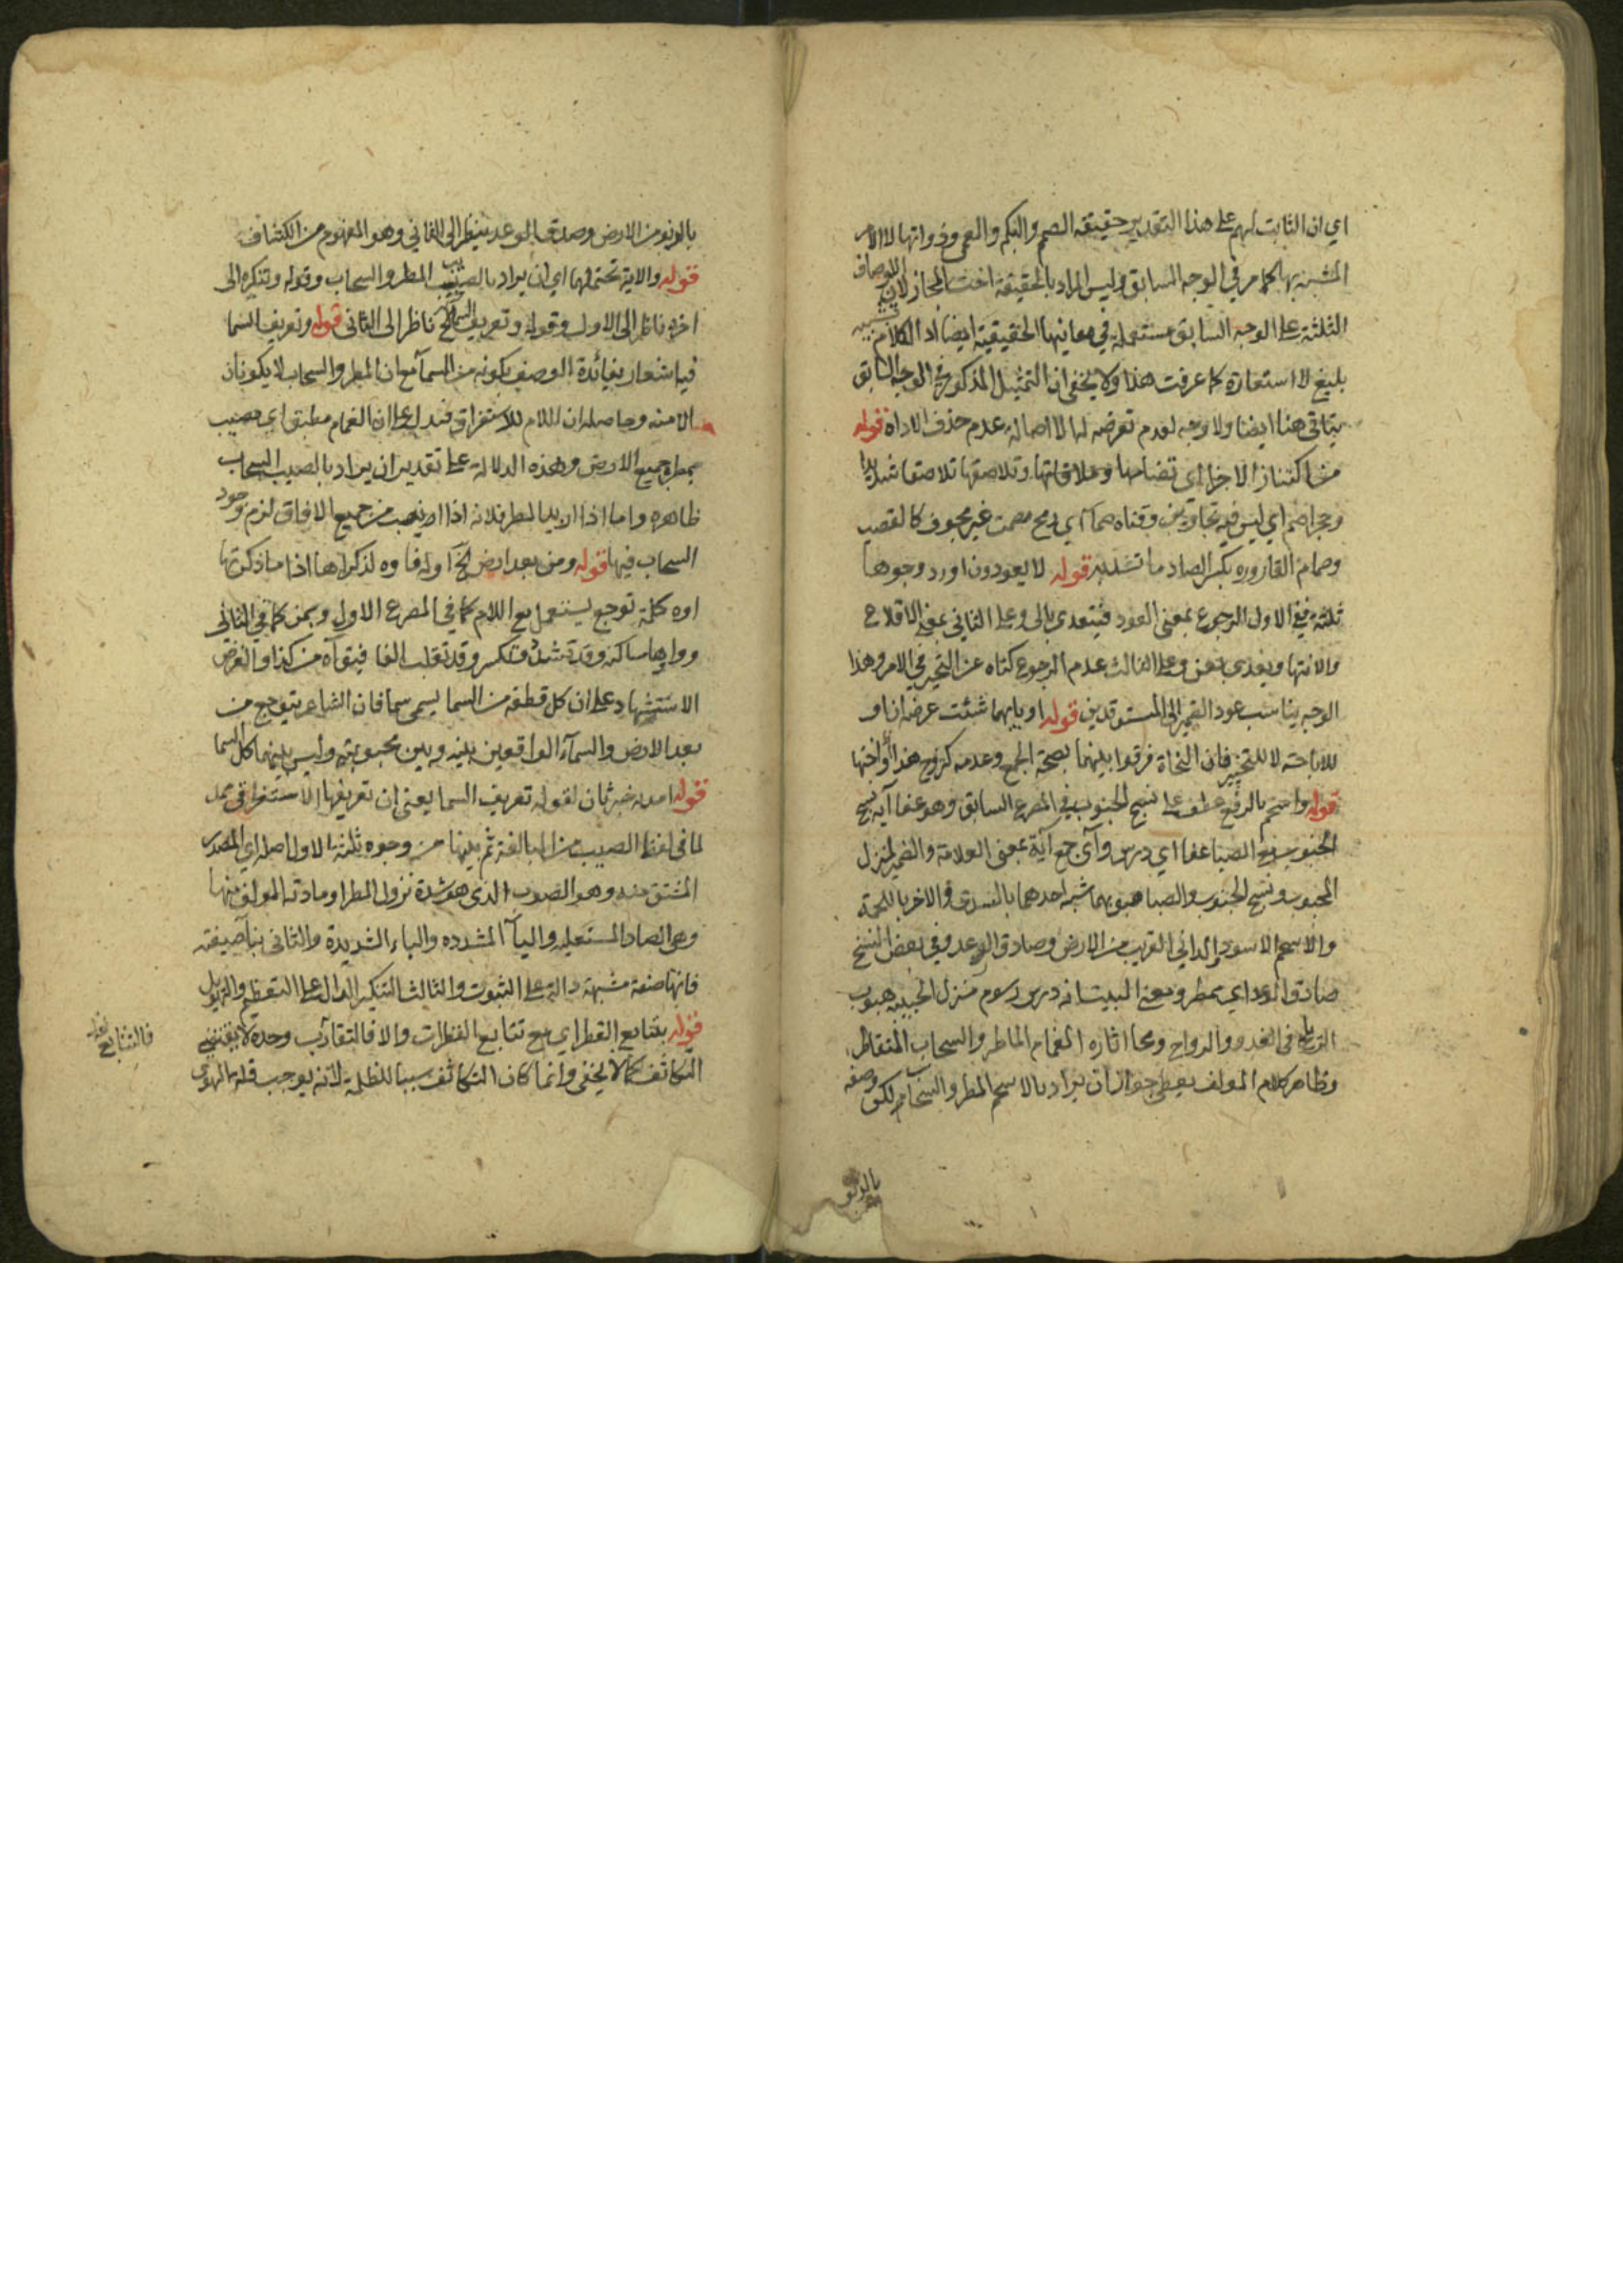 اي ان الثابت لهم على هذا التقدير حقيقة الصم والبكم والعمى وذواتها لا الامر
المشبه بها كما مر في الوجه السابق وليس المراد بالحقيقة اخت المجاز لان الاوصاف
الثلثة على الوجه السابق مستعملة في معانيها الحقيقية ايضا اذ الكلام تشبيه
بليغ لا استعارة كما عرفت هذا ولا يخفى ان التمثيل المذكور في الوجه السابق
يتاتى هنا ايضا ولا وجه لعدم تعرضه لها لا اصالة عدم حذف الاداة قوله
من اكتناز الاجزا اي تضامها وتلاصقها تلاصقا شديدا
وحجر اصم اي ليس فيه تجاويف وقناه صمآ اي رمح مصمت غير مجوف كالقصب
وصمام القاروره بكسر الصاد ما تشد به قوله لا يعودون اورد وجوها
ثلثة فعلى الاول الرجوع بمعنى العود فيتعدى بالى وعلى الثاني بمعنى الاقلاع
والانتها ويعدى بعن وعلى الثالث عدم الرجوع كناه عن التحير في الامر وهذا
الوجه يناسب عود الضمير الى المستوقدين قوله او بايهما شئت عرضه ان او
للاباحة لا للتخيير فان النحاة فرقوا بينهما بصحة الجمع وعدمه كتزوج هندا او اختها
قوله واسحم بالرفع عطف على نسج الجنوب في المصرع السابق وهو عفا آيه نسج
الجنوب مع الصبا عفا اي درس وآي جمع آية بمعنى العلامة والضمير لمنزل
المحبوب ونسج الجنوب والصبا هبوبهما شبه احدهما بالسدى والاخر باللحمة
والاسحم الاسود والداني القريب من الارض وصادق الوعد وفي بعض النسخ
صادق الرعد اي ممطر ومعنى البيت انه درس رسوم منزل الحبيبه هبوب
الرياح في الغدو والرواح ومحا اثاره الغمام الماطر والسحاب المتقاطر
وظاهر كلام المولف يعطي جواز ان يراد بالاسحم المطر والسحاب لكن وصفه
بالدنو
بالدنو من الارض وصدق الوعد ينظر الى الثاني وهو المفهوم من الكشاف
قوله والاية تحتملهما اي ان يراد بالصيب المطر والسحاب وقوله وتنكيره الى
اخره ناظر الى الاول وقوله وتعريف السما الخ ناظر الى الثاني قوله وتعريف السما
فيه اشعار بفائدة الوصف بكونه من السمآ مع ان المطر والسحاب لا يكونان
الا منه وحاصله ان اللام للاستغراق فتدل على ان الغمام مطبق اي مصيب
بمطره جميع الارض وهذه الدلالة على تقدير ان يراد بالصيب السحاب
ظاهره واما اذا اريد المطر فلانه اذا انصب من جميع الافاق لزم وجود
السحاب فيها قوله ومن بعد ارض الخ اوله فاوه لذكراها اذا ما ذكرتها
اوه كلمة توجع يستعمل مع اللام كما في المصرع الاول وبمن كما في الثاني
وواوها ساكنه وقد تشدد وتكسر وقد تقلب الفا فيق آه من كذا والغرض
الاستشهاد على ان كل قطعه من السما يسمى سما فان الشاعر يتوجع من
بعد الارض والسمآء الواقعين بينه وبين محبوبته وليس بينهما كل السما
قوله امد به خبر ثان لقوله تعريف السما يعني ان تعريفها الاستغراقي يمد
لما في لفظ الصيب من المبالغة ثم بينها من وجوه ثلثة الاول اصله اي المصدر
المشتق منه وهو الصوب الذي هو شدة نزول المطر او مادته المولف منها
وهي الصاد المستعليه واليآ المشدده والباء الشديدة والثاني بناء صيغته
فانها صفة مشبهة دالة على الثبوت والثالث التنكير الدال على التعظيم والتهويل
قوله بتتابع القطر اي مع تتابع القطرات والا فالتقارب وحده لا يقتضي
التكاثف كما لا يخفى وانما كان التكاثف سببا للظلمة لانه يوجب قلة الهوى
فالتتابع